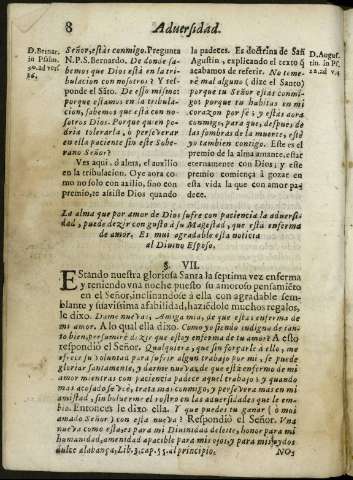 8
Adversidad.
D. Bernar.
in Psalm.
Señor, estàs conmigo. Pregunta
N.P.S. Bernardo. De donde sa-
bemos que Dios està en la tribu-
lacion con nosotros? Y res-
ponde el Sãto. De esso mismo:
porque estamos en la tribula-
cion, sabemos que està con no-
sotros Dios. Porque quien po-
dria tolerarla, ò perseverar
en ella paciente sin este Sobe-
rano Señor?
Ves aqui, ò alma, el auxilio
en la tribulacion. Oye aora co-
mo no solo con auxilio, sino con
premio, te assiste Dios quando
la padeces. Es doctrina de San
Agustin, explicando el texto q̃
acabamos de referir. No teme-
rè mal alguno (dize el Santo)
porque tu Señor estàs conmi-
go: porque tu habitas en mi
corazon por fè, y estàs aora
conmigo, para que, despues de
las sombras de la muerte, estè
yo tambien contigo. Este es el
premio de la alma amante, estar
eternamente con Dios; y este
premio comiença à gozar en
esta vida la que con amor pa-
dece.
D. August.
tin. in Ps.
22. ad v. 4
La alma que por amor de Dios sufre con paciencia la adversi-
dad, puede dezir con gusto à su Magestad, que està enferma
de amor. Es mui agradable esta noticia
al Divino Esposo.
§. VII.
Estando nuestra gloriosa Santa la septima vez enferma
y teniendo vna noche puesto su amoroso pensamiẽto
en el Señor, inclinandose à ella con agradable sem-
blante y suavissima afabilidad, haziẽdole muchos regalos,
le dixo. Dame nuevas, Amiga mia, de que estàs enferma de
mi amor. A lo qual ella dixo. Como yo siendo indigna de tan-
to bien, presumirè dezir que estoy enferma de tu amor? A esto
respondiò el Señor. Qualquiera, que sin forçarle à ello, me
ofrece su voluntad para sufrir algun trabajo por mi, se puede
gloriar santamente, y darme nuevas, de que està enfermo de mi
amor mientras con paciencia padece aquel trabajo: y quando
mas acosado se vè, trata mas conmigo, y persevera mas en mi
amistad, sin bolverme el rostro en las adversidades que le em-
bio. Entonces le dixo ella. Y que puedes tu ganar (ò mi
amado Señor) con esta nueva? Respondiò el Señor. Vna
nueva como esta, es para mi Divinidad deleite, honor para mi
humanidad, amenidad apacible para mis ojos, y para mis oydos
dulce alabança, Lib. 3. cap. 55. al principio.
NOs